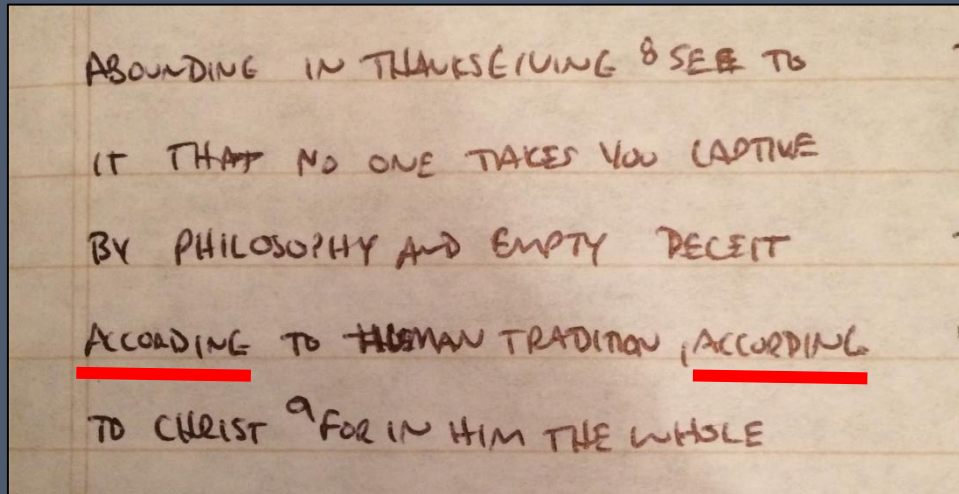 ABOUNDING IN THANKSGIVING 8 SEE TO
IT THAT NO ONE TAKES YOU CAPTIVE
BY PHILOSOPHY AND EMPTY DECEIT
ACCORDING TO HUMAN TRADITION, ACCORDING
TO CHRIST 9 FOR IN HIM THE WHOLE